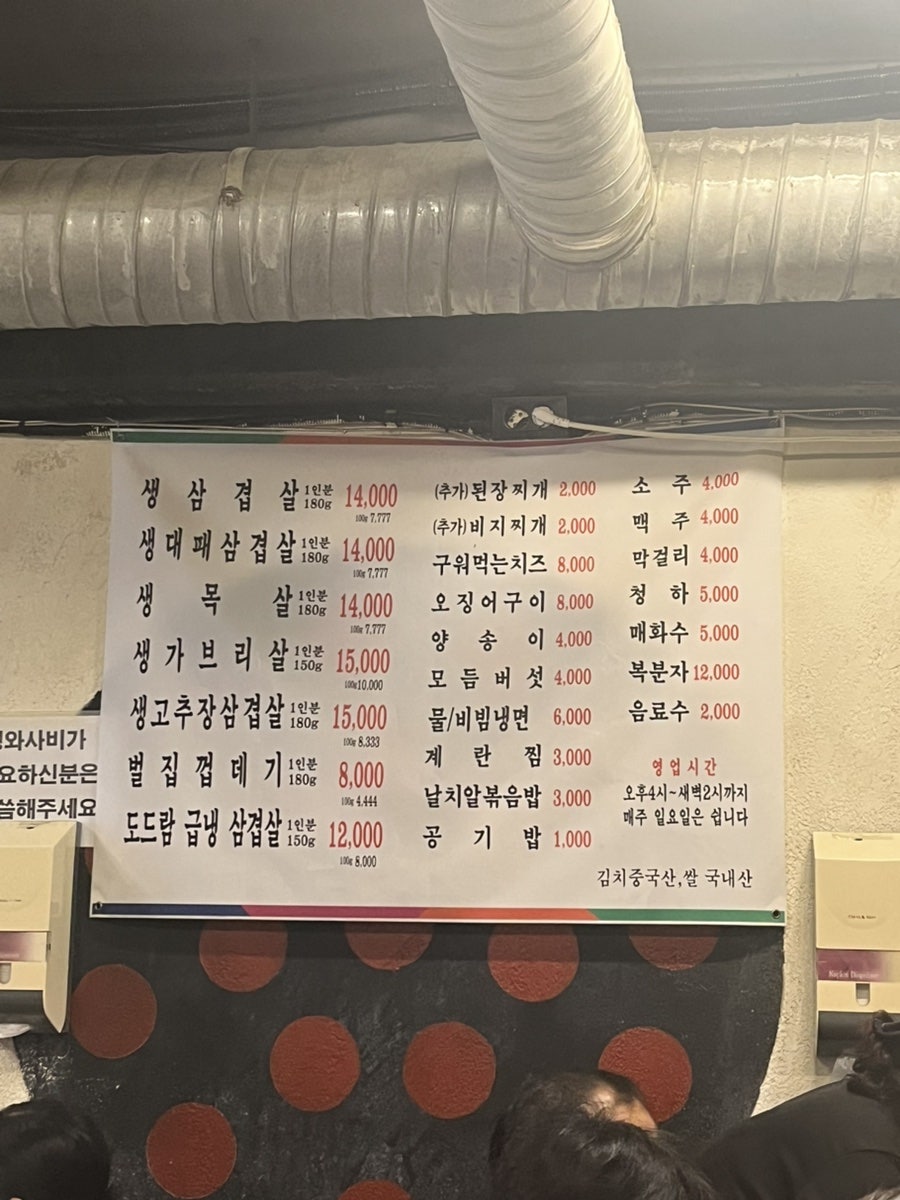 생삼겹살 1인분 180g 14,000
100g 7,777
생대패삼겹살 1인분 180g 14,000
100g 7,777
생목살 1인분 180g 14,000
100g 7,777
생가브리살 1인분 150g 15,000
100g 10,000
생고추장삼겹살 1인분 180g 15,000
100g 8.333
벌집껍데기 1인분 180g 8,000
100g 4.444
도드람 급냉 삼겹살 1인분 150g 12,000
100g 8.000
(추가)된장찌개 2,000
(추가)비지찌개 2,000
구워먹는치즈 8,000
오징어구이 8,000
양송이 4,000
모듬버섯 4,000
물/비빔냉면 6,000
계란찜 3,000
날치알볶음밥 3,000
공기밥 1,000
소주 4,000
맥주 4,000
막걸리 4,000
청하 5,000
매화수 5,000
복분자 12,000
음료수 2,000
영업시간
오후4시~새벽2시까지
매주 일요일은 쉽니다
김치중국산,쌀 국내산
와사비가
요하신분은
씀해주세요